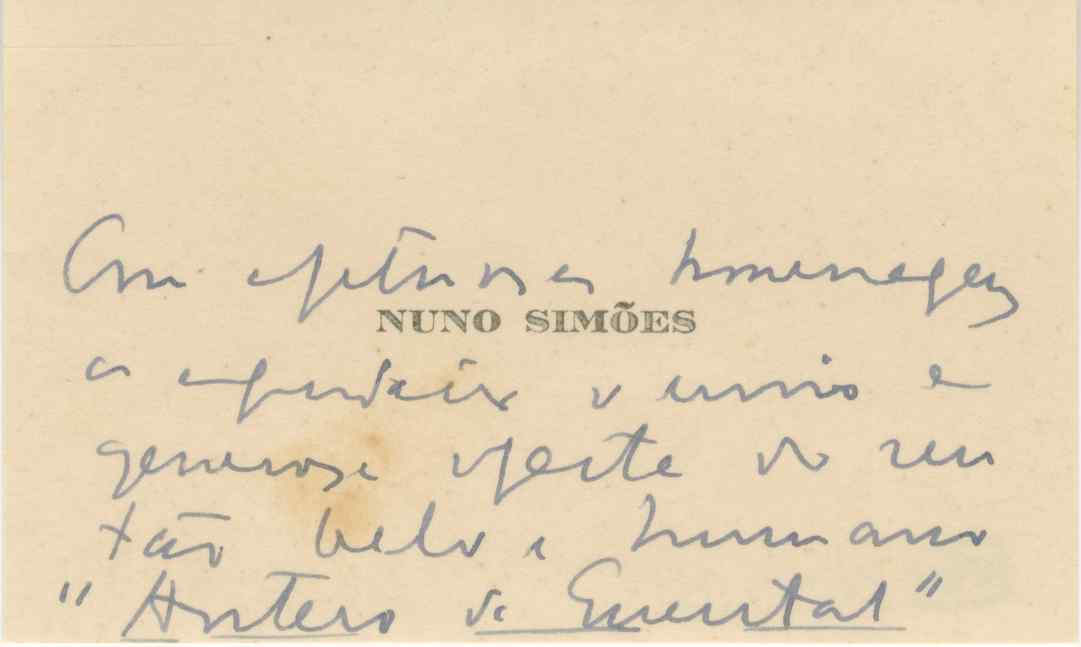 Com afectuosa homenagem
NUNO SIMÕES
a agradecer o envio e
generosa oferta do seu
tão belo e humano
"Antero de Quental"